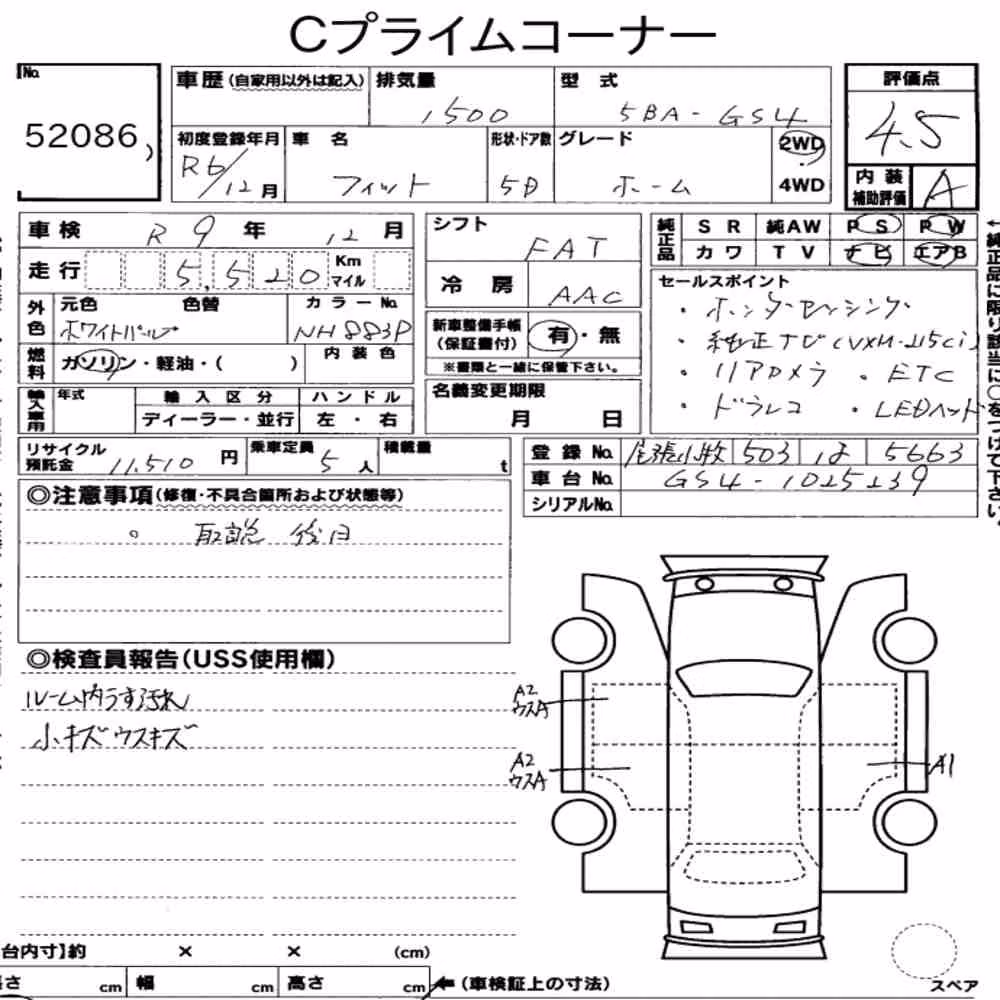 Cプライムコーナー
No.
52086
車歴(自家用以外は記入)
排気量
1500
型式
5BA-GS4
評価点
4.5
初度登録年月
R6/12月
車名
フィット
形状・ドア数
5D
グレード
ホーム
2WD
4WD
内装補助評価
A
車検 R 9年 12月
走行 5,520 Km マイル
外色
元色
ホワイトパール
色替
カラーNo.
NH883P
燃料
ガソリン・軽油・( )
内装色
輸入車用
年式
輸入区分
ディーラー・並行
ハンドル
左・右
シフト
FAT
冷房
AAC
新車整備手帳(保証書付)
有・無
※書類と一緒に保管下さい。
名義変更期限
月 日
純正品
SR 純AW PS PW
カワ TV ナビ エアB
←純正品に限り該当に○をつけて下さい。
セールスポイント
・ホンダセンシング
・純正ナビ(VXM-215Ci)
・リアカメラ ・ETC
・ドラレコ ・LEDヘッド
リサイクル預託金 11,510円
乗車定員 5人
積載量 t
登録No. 尾張小牧 503 は 5663
車台No. GS4-1025239
シリアルNo.
◎注意事項(修復・不具合箇所および状態等)
。取説 後日
◎検査員報告(USS使用欄)
ルーム内うす汚れ
小キズウスキズ
A2
ウスA
A2
ウスA
A1
台内寸】約 × × (cm)
さ cm 幅 cm 高さ cm
←(車検証上の寸法)
スペア